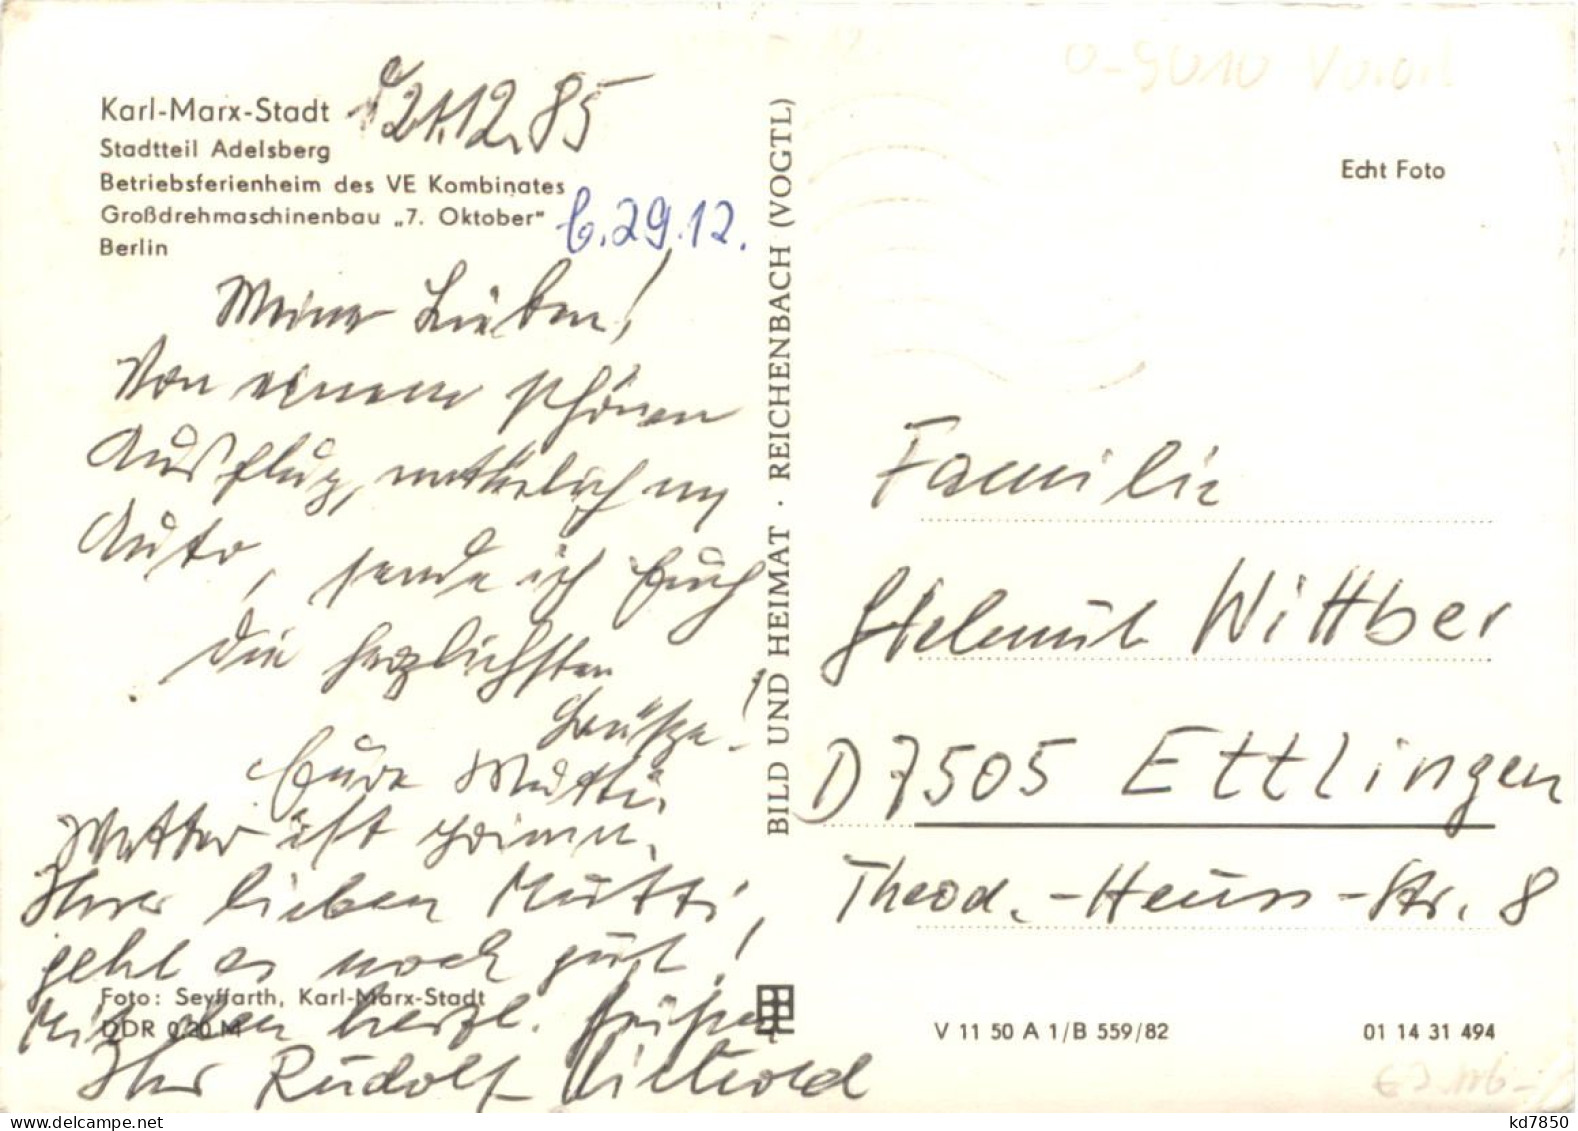 Karl-Marx-Stadt
21.12.85
Stadtteil Adelsberg
Betriebsferienheim des VE Kombinates
Großdrehmaschinenbau „7. Oktober"
Berlin
b. 29.12.
Meine Lieben!
Von einem schönen
Ausflug, natürlich im
Auto, sende ich Euch
die herzlichsten
Grüße!
Eure Mutti.
Wetter ist prima.
Ihrer lieben Mutti,
geht es noch gut!
Mit herzl. Grüßen
Ihr Rudolf
Foto: Seyffarth, Karl-Marx-Stadt
DDR 0,20 M
BILD UND HEIMAT · REICHENBACH (VOGTL)
Echt Foto
Familie
Helmut Wittber
D 7505 Ettlingen
Theod.-Heuss-Str. 8
V 11 50 A 1/B 559/82
01 14 31 494
kd7850